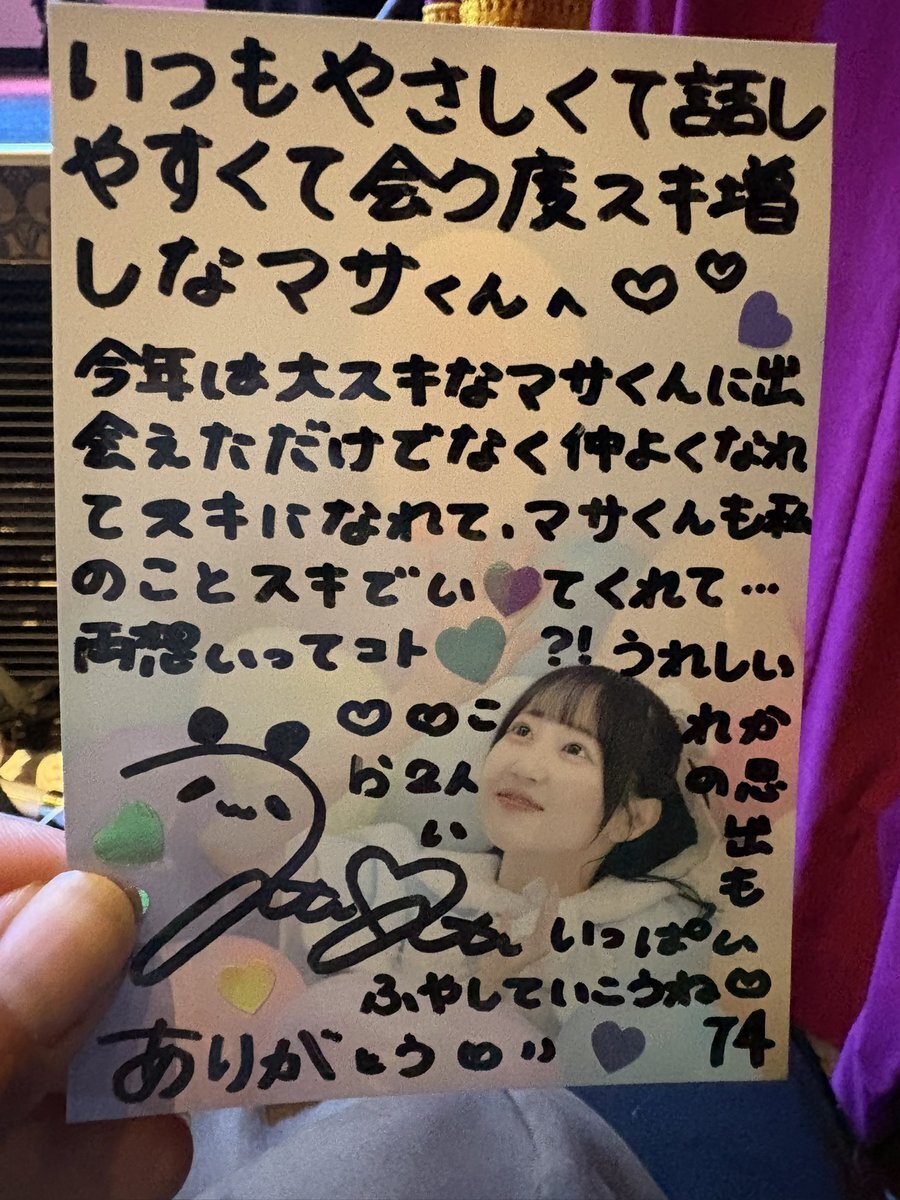 いつもやさしくて話し
やすくて会う度スキ増
しなマサくんへ♡♡
今年は大スキなマサくんに出
会えただけでなく仲よくなれ
てスキになれて、マサくんも私
のことスキでいてくれて…
両想いってコト?!うれしい
♡♡これか
ら2人の思
い出も
いっぱい
ふやしていこうね♡
ありがとう♡
74